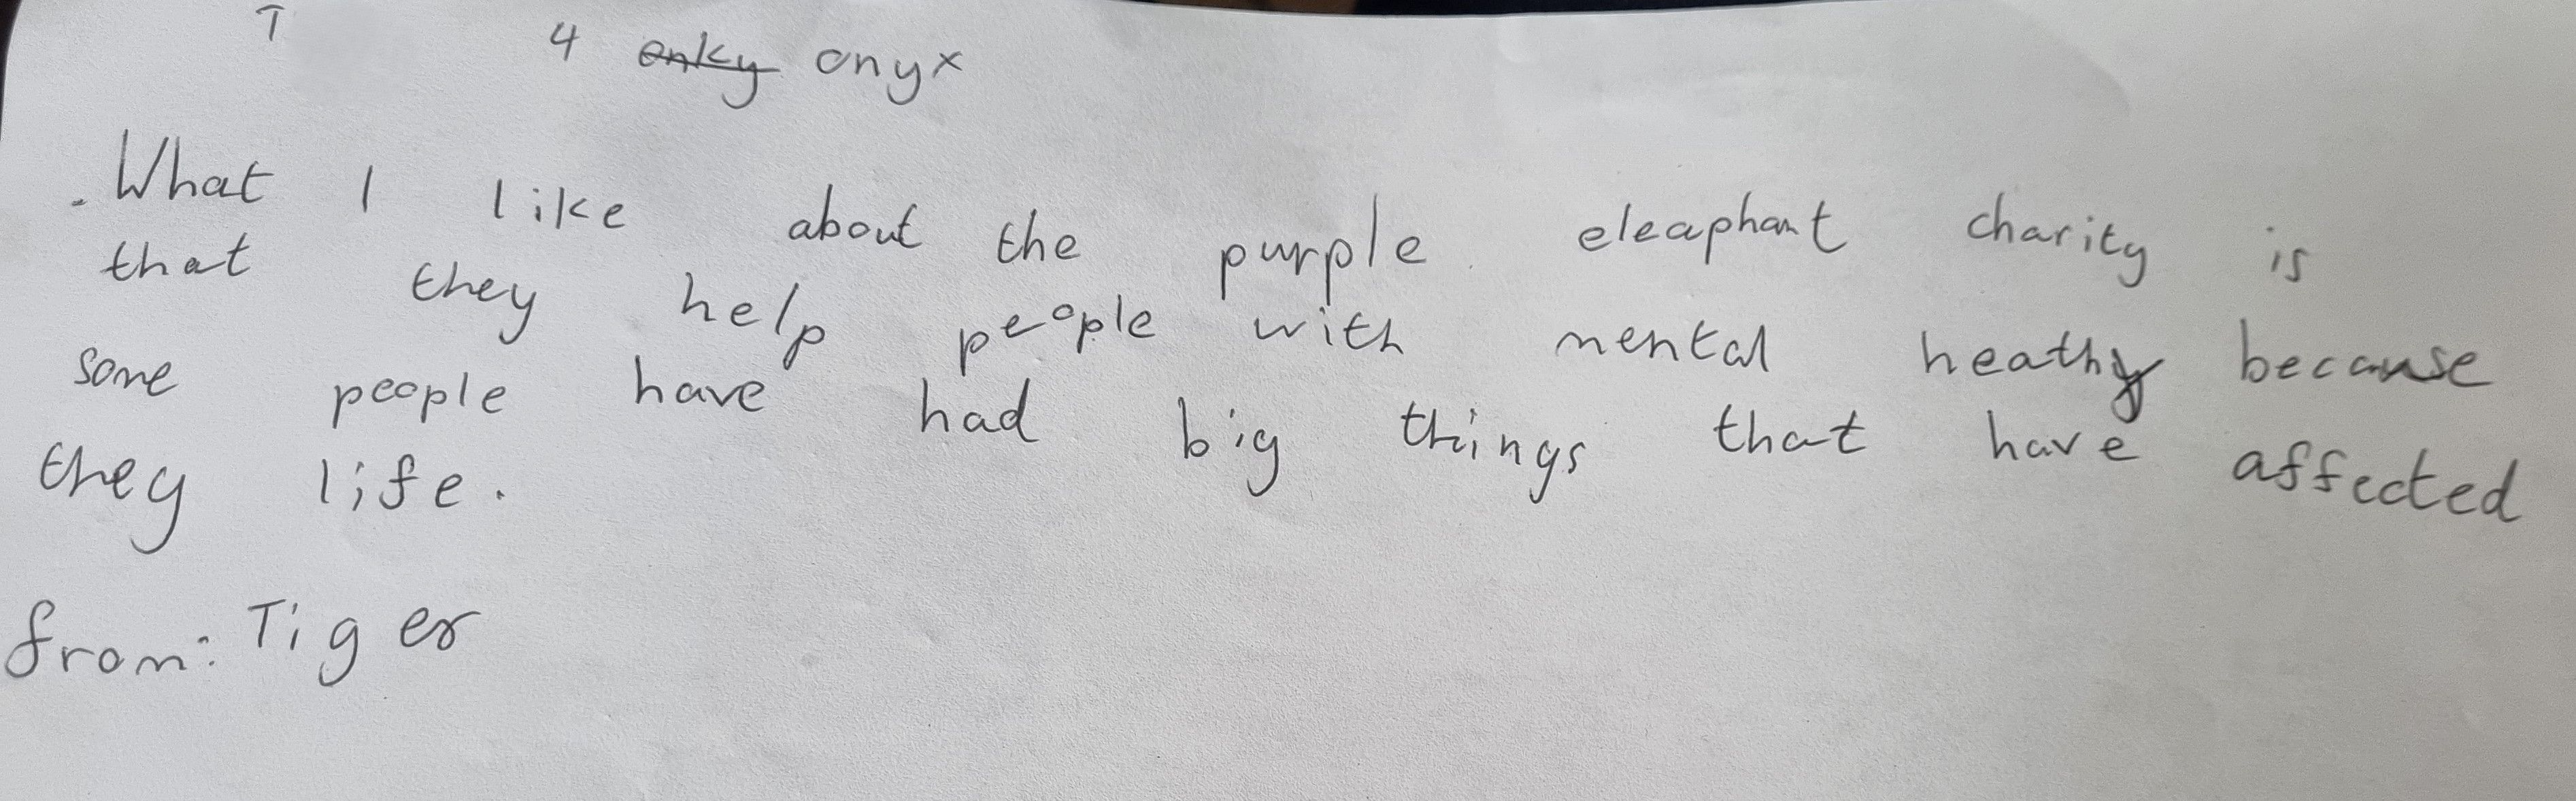 T 4 enky onyx
. What I like about the purple eleaphant charity is
that they help people with mental heathy because
some people have had big things that have affected
they life.
from: Tiger